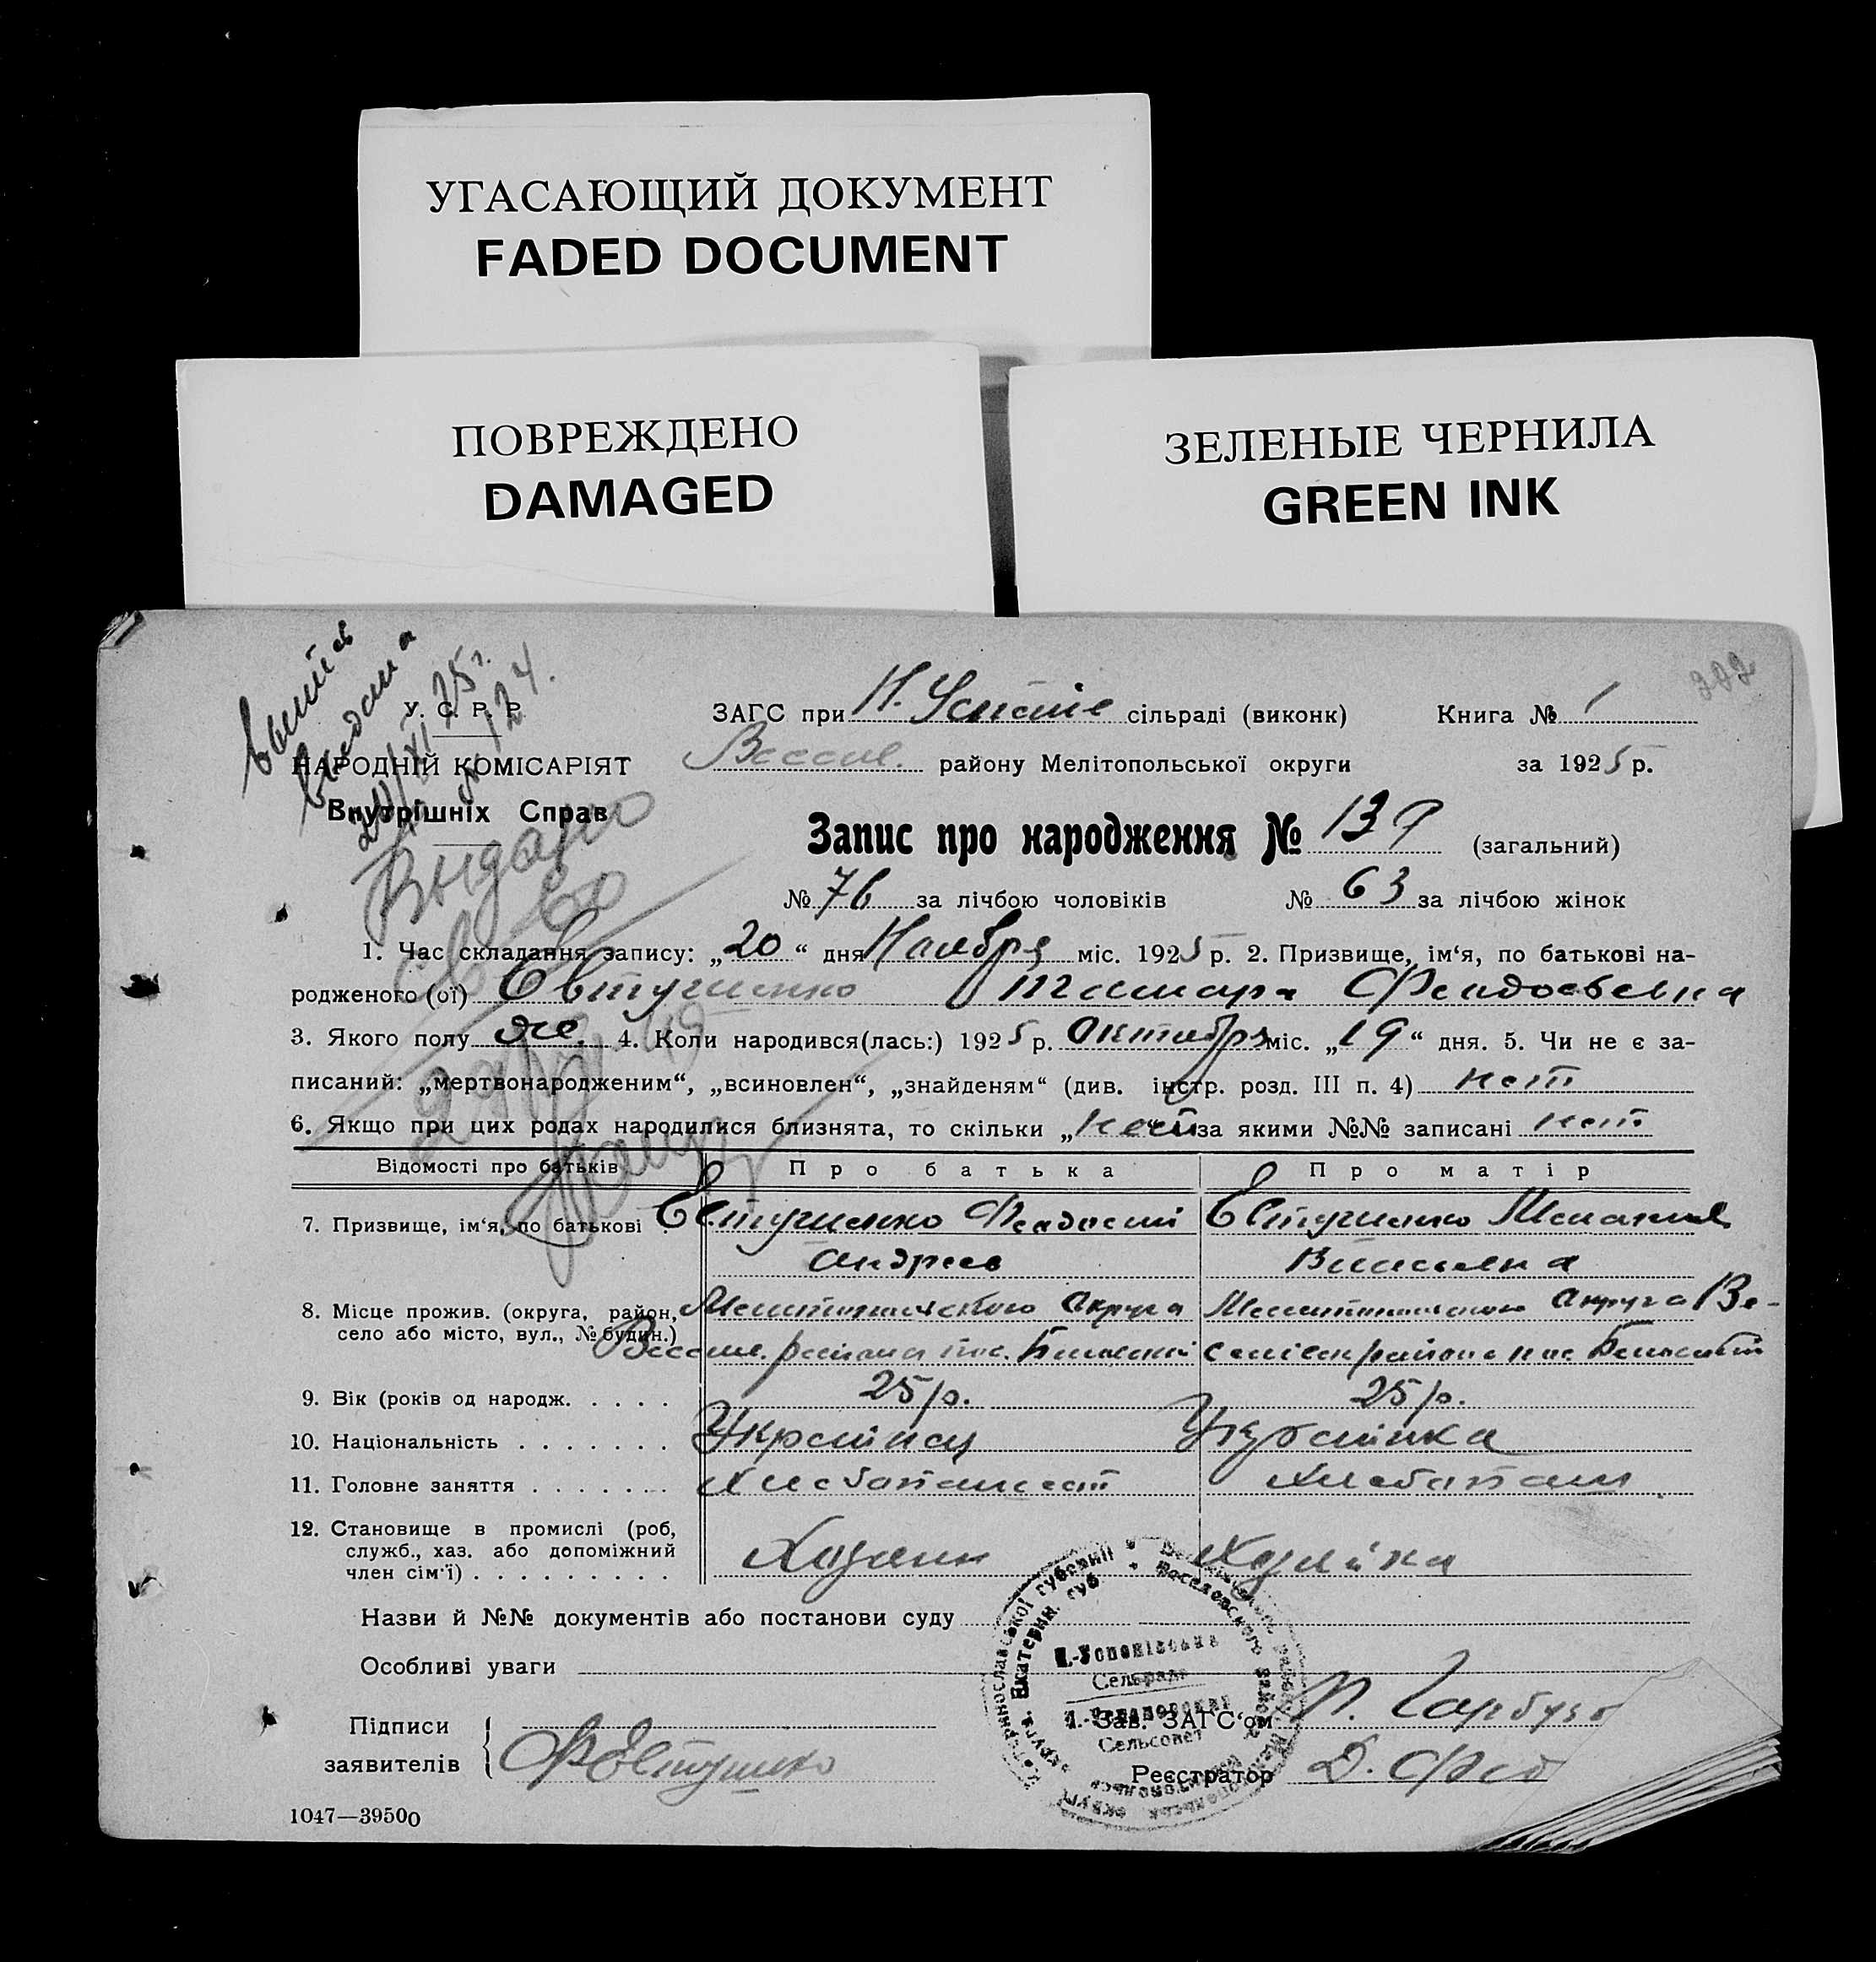 УГАСАЮЩИЙ ДОКУМЕНТ
FADED DOCUMENT
ПОВРЕЖДЕНО
DAMAGED
ЗЕЛЕНЫЕ ЧЕРНИЛА
GREEN INK
202
У. С. Р. Р.
НАРОДНІЙ КОМІСАРІЯТ
Внутрішніх Справ
Выдано
ЗАГС при сільраді (виконк) Книга № 1
Весел. району Мелітопольської округи за 1925 р.
Запис про народження № 139 (загальний)
№ 76 за лічбою чоловіків № 63 за лічбою жінок
1. Час складання запису: „20“ дня Ноября міс. 1925 р. 2. Призвище, ім‘я, по батькові на-
родженого (ої) Евтушенко Тамара Феодосьевна
3. Якого полу же. 4. Коли народився(лась:) 1925 р. Октября міс. „19“ дня. 5. Чи не є за-
писаний: „мертвонародженим“, „всиновлен“, „знайденям“ (див. інстр. розд. III п. 4) нет
6. Якщо при цих родах народилися близнята, то скільки „нет“ за якими №№ записані нет
Відомості про батьків Про батька Про матір
7. Призвище, ім‘я, по батькові Евтушенко Феодосий Евтушенко
Андреев
8. Місце прожив. (округа, район, Мелитопольского Округа Мелитопольского Округа Ве-
село або місто, вул., № будин.) Весел. района пос.
9. Вік (років од народж. . . . . 25 р. 25 р.
10. Національність . . . . . . . Українец Українка
11. Головне заняття . . . . . . . Хлебопашест Хлебопаш
12. Становище в промислі (роб,
служб., хаз. або допоміжний Хозяин Хозяйка
член сім‘ї) . . . . . . . . .
Назви й №№ документів або постанови суду
Особливі уваги
Сельрада
Сельсовет
Підписи Зав. ЗАГС‘ом
заявителів ФЕвтушенко Реєстратор
1047—39500